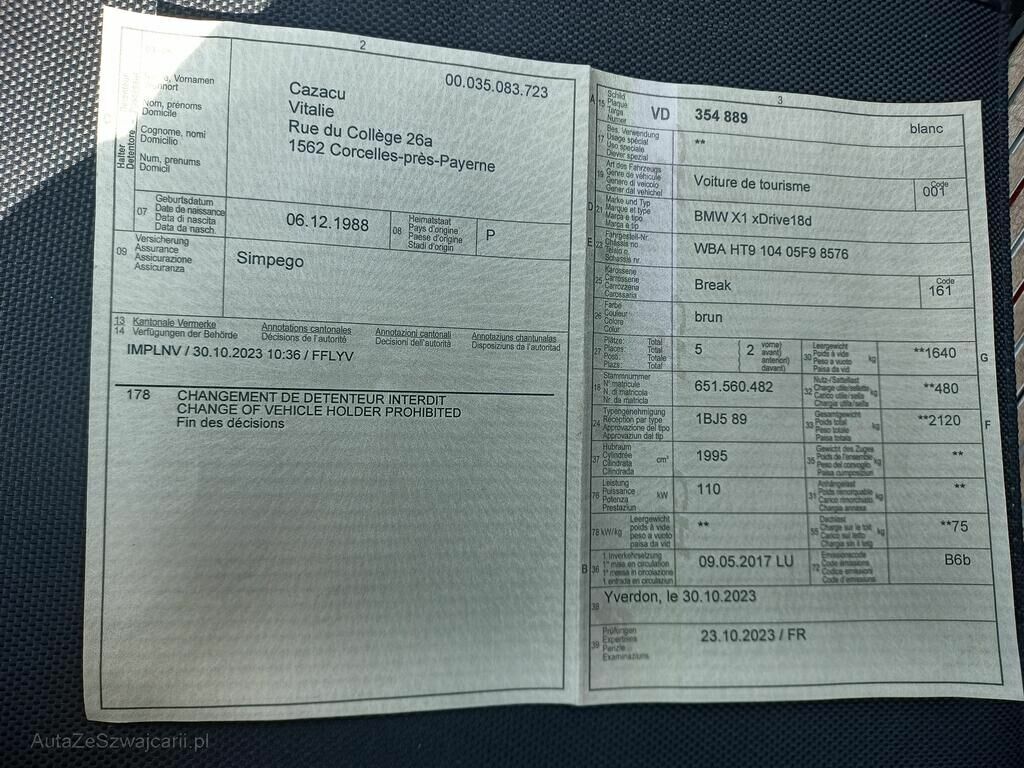 2
00.035.083.723
Vornamen
Nom, prénoms
Domicile
Cognome, nomi
Domicilio
Num, prenums
Domicil
Halter
Cazacu
Vitalie
Rue du Collège 26a
1562 Corcelles-près-Payerne
07
Geburtsdatum
Date de naissance
Data di nascita
Data da nasch.
06.12.1988
08
Heimatstaat
Pays d'origine
Paese d'origine
Stadi d'origin
P
09
Versicherung
Assurance
Assicurazione
Assicuranza
Simpego
13 Kantonale Vermerke Annotations cantonales Annotazioni cantonali Annotaziuns chantunalas
14 Verfügungen der Behörde Décisions de l'autorité Decisioni dell'autorità Disposiziuns da l'autoritad
IMPLNV / 30.10.2023 10:36 / FFLYV
178 CHANGEMENT DE DETENTEUR INTERDIT
CHANGE OF VEHICLE HOLDER PROHIBITED
Fin des décisions
3
A 15
Schild
Plaque
Targa
Numer
VD 354 889 blanc
17
Bes. Verwendung
Usage spécial
Uso speciale
Diever spezial
**
19
Art des Fahrzeugs
Genre de véhicule
Genere di veicolo
Gener dal vehichel
Voiture de tourisme
Code
001
D 21
Marke und Typ
Marque et type
Marca e tipo
Marca e tip
BMW X1 xDrive18d
E 23
Fahrgestell-Nr.
Châssis no
Telaio n.
Schassis nr.
WBA HT9 104 05F9 8576
25
Karosserie
Carrosserie
Carrozzeria
Carossaria
Break
Code
161
26
Farbe
Couleur
Colore
Colur
brun
27
Plätze: Total
Places: Total
Posti: Totale
Plazs: Total
5
2
vorne)
avant)
anteriori)
davant)
30
Leergewicht
Poids à vide
Peso a vuoto
Paisa da vid
kg
**1640
G
18
Stammnummer
N° matricule
N. di matricola
Nr. da matricla
651.560.482
32
Nutz-/Sattellast
Charge utile/sellette
Carico utile/sella
Chargia utila/sella
kg
**480
24
Typengenehmigung
Réception par type
Approvazione del tipo
Approvaziun dal tip
1BJ5 89
33
Gesamtgewicht
Poids total
Peso totale
Paisa totala
kg
**2120
F
37
Hubraum
Cylindrée
Cilindrata
Cilindrada
cm³
1995
35
Gewicht des Zuges
Poids de l'ensemble
Peso del convoglio
Paisa cumposiziun
kg
**
76
Leistung
Puissance
Potenza
Prestaziun
kW
110
31
Anhängelast
Poids remorquable
Carico rimorchiato
Chargia annexa
kg
**
78 kW/kg
Leergewicht
poids à vide
peso a vuoto
paisa da vid
**
55
Dachlast
Charge sur le toit
Carico sul tetto
Chargia sin il tetg
kg
**75
B 36
1. Inverkehrsetzung
1re mise en circulation
1a messa in circolazione
1. entrada en circulaziun
09.05.2017 LU
72
Emissionscode
Code émissions
Codice emissioni
Code d'emissiuns
B6b
38
Yverdon, le 30.10.2023
39
Prüfungen
Expertises
Perizie
Examinaziuns
23.10.2023 / FR
AutaZeSzwajcarii.pl